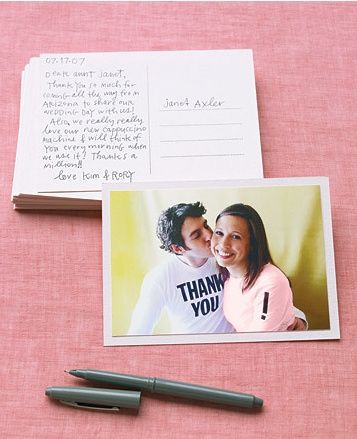 07.17.07
Dear aunt Janet,
Thank you so much for
coming all the way from
Arizona to share our
wedding day with us!
Also, we really really
love our new cappuccino
machine & will think of
you every morning when
we use it! Thanks a
million!!
love Kim & Rory
Janet Axler
THANK
YOU
!